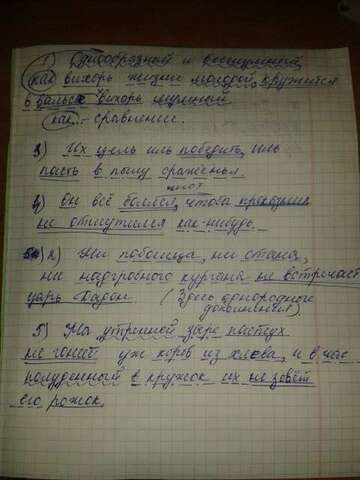 1) Однообразный и безумный,
как вихорь жизни молодой, кружится
вальса вихорь шумный
как... сравнение.
3) Их цель иль победить, иль
пасть в пылу сраженья
4) Он всё боялся, чтоб проказник
не отшутился как-нибудь.
2) Ни побоища, ни стана,
ни надгробного кургана не встречает
царь Дадон. (Здесь однородные
дополнения)
5) На утренней заре пастух
не гонит уж коров из хлева, и в час
полуденный в кружок их не зовёт
его рожок.